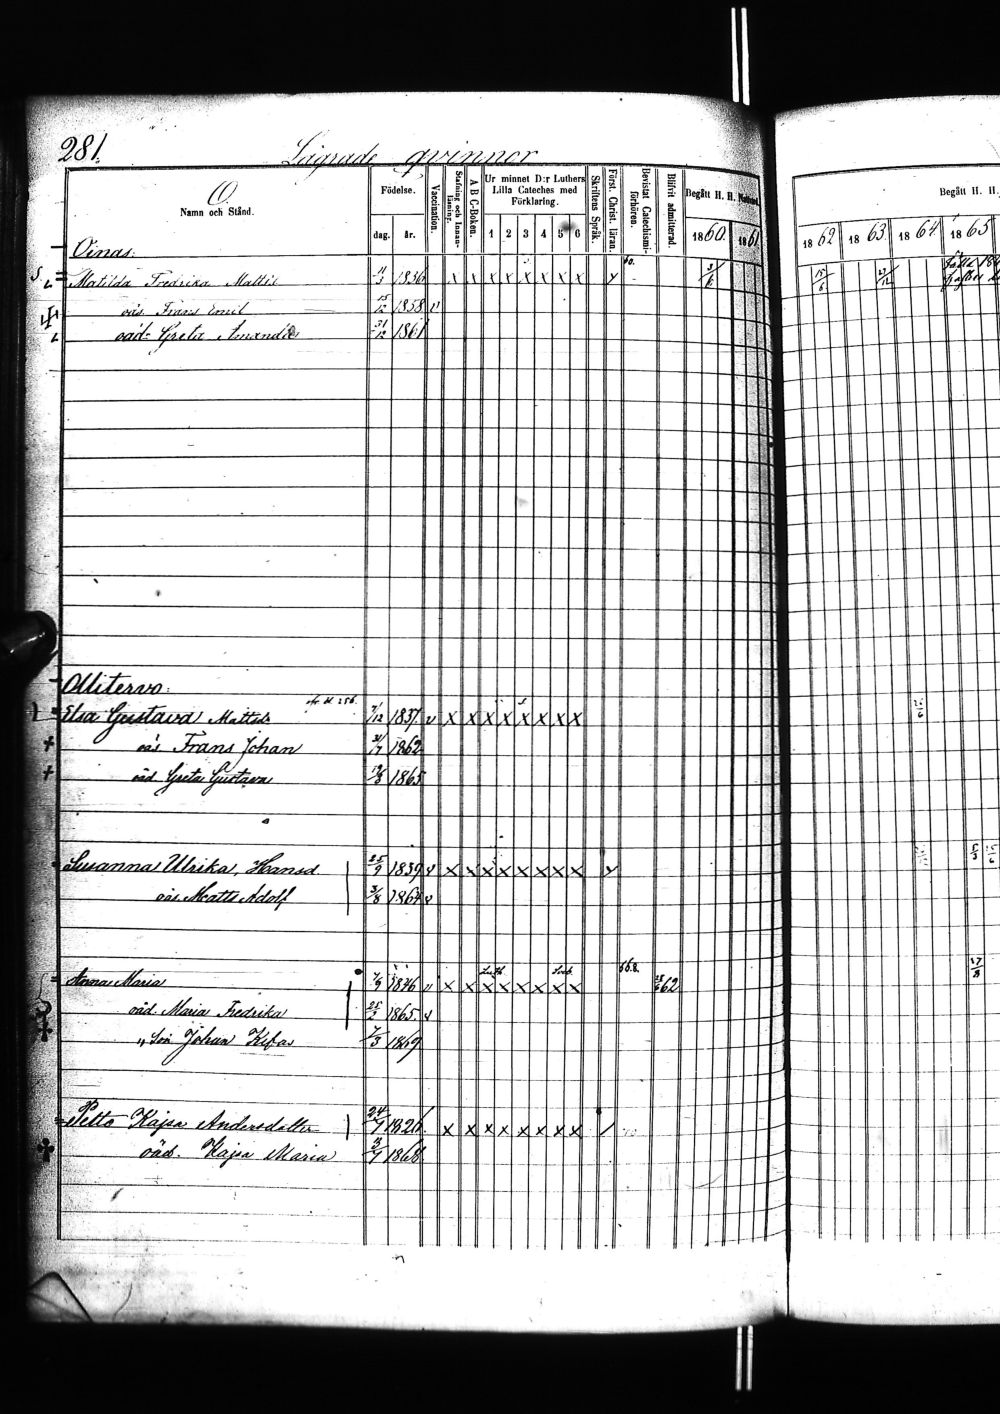 281.
Lägrade qvinnor
O.
Namn och Stånd.
Födelse.
dag. år.
Vaccination.
Stafning och Innanläsning.
A B C-Boken.
Ur minnet D:r Luthers Lilla Cateches med Förklaring.
1 2 3 4 5 6
Skriftens Språk.
Först. Christ. läran.
Bevistat Catechismiförhören.
Blifvit admitterad.
Begått H. H. Nattvard.
1860. 1861
Begått H. H.
1862 1863. 1864 1865
Oinas.
Matilda Fredrika Mattsd 11/3 1836 x x x x x x x x
oäs. Frans Emil 15/12 1858 v
oäd. Greta Amanda 31/12 1861
15/6
Ollitervo:
Elsa Gustava Mattsd 1837 v x x x x x x x x
oäs Frans Johan 31/7 1862
oäd Greta Gustava 1865
Susanna Ulrika, Hansd 25/9 1839 v x x x x x x x x
oäs. Matts Adolf 3/8 1864 v
Anna Maria 7/9 1846 v x x x x x x x x 62
17/8
oäd. Maria Fredrika 25/2 1865 v
„ Son Johan Kefas 7/3 1869
Petto Kajsa Andersdotter 24/7 1826. x x x x x x x x
oäd. Kajsa Maria 3/7 1868